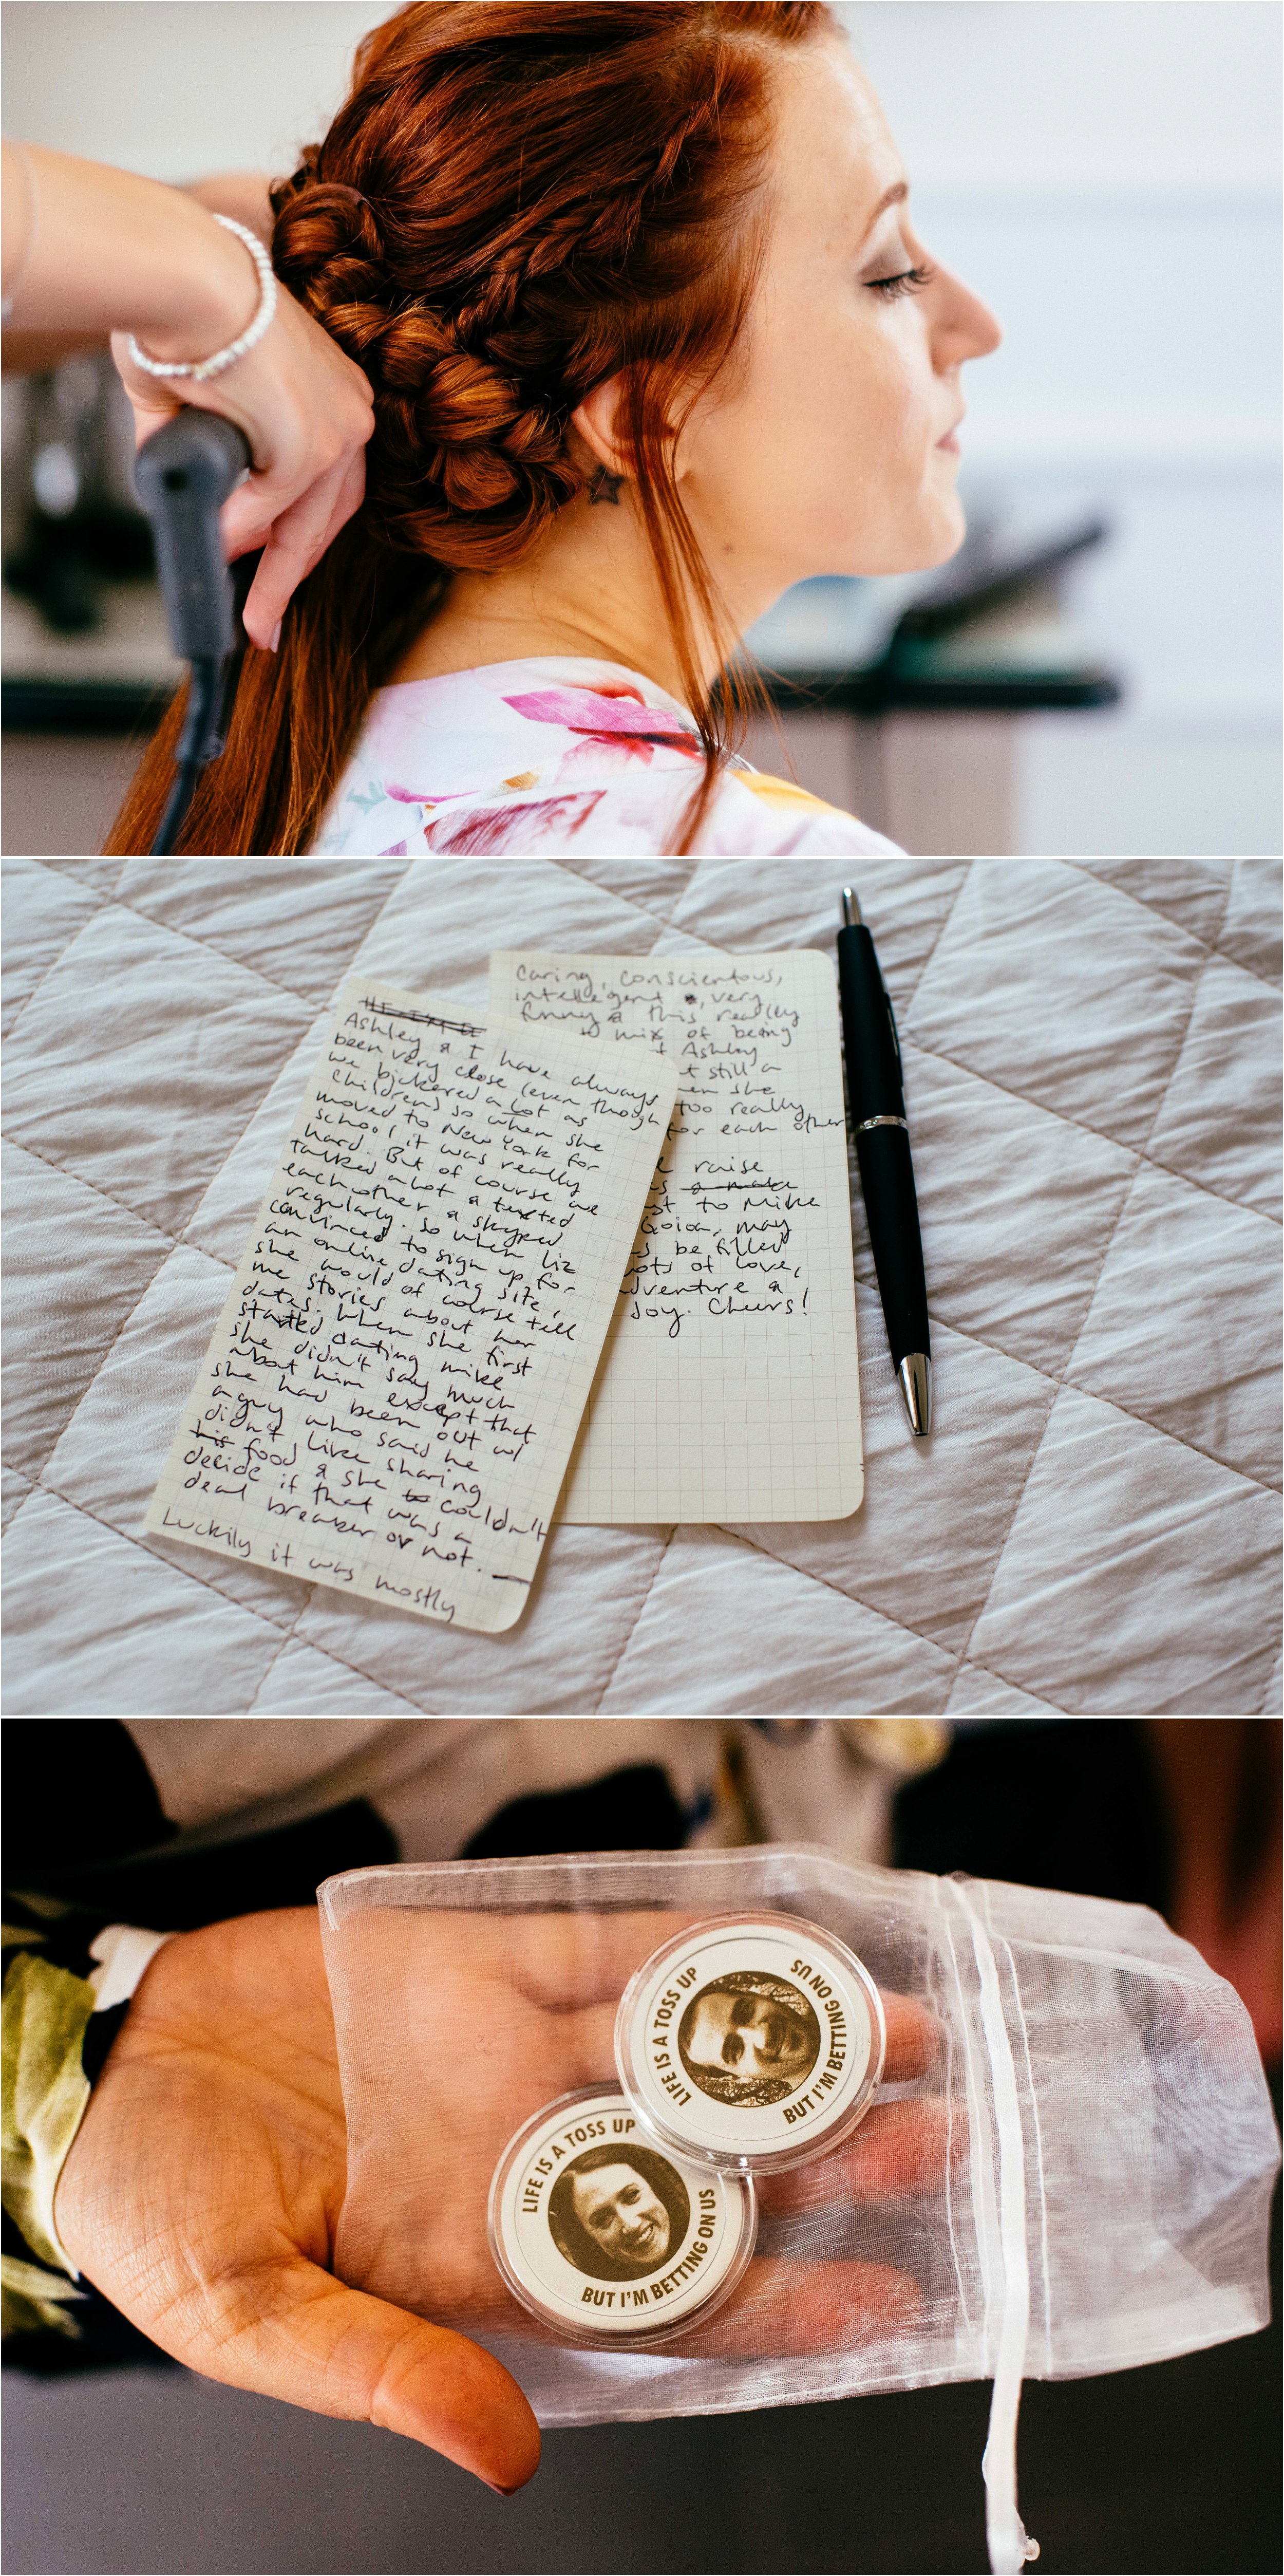 Ashley & I have always
been very close (even though
we bickered a lot as
children) so when she
moved to New York for
school, it was really
hard. But of course we
talked alot & texted
eachother & skyped
regularly. So when Liz
convinced to sign up for
an online dating site,
she would of course tell
me stories about her
dates. When she first
started dating mike
she didn't say much
about him except that
she had been out w/
a guy who said he
didn't like sharing
his food & she to couldn't
decide if that was a
deal breaker or not.
Luckily it was mostly
Caring, conscientous,
intellegent, very
funny & this really
mix of being
& Ashley
t still a
en she
too really
for each other
raise
st to Mike
Goioa, may
be filled
lots of love,
adventure &
Joy. Cheers!
LIFE IS A TOSS UP
BUT I'M BETTING ON US
LIFE IS A TOSS UP
BUT I'M BETTING ON US